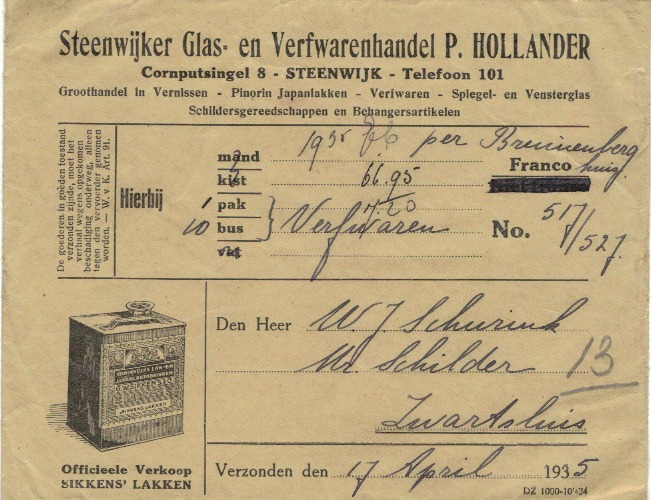 Steenwijker Glas- en Verfwarenhandel P. HOLLANDER
Cornputsingel 8 - STEENWIJK - Telefoon 101
Groothandel in Vernissen - Pinorin Japanlakken - Verfwaren - Spiegel- en Vensterglas
Schildersgereedschappen en Behangersartikelen
De goederen in goeden toestand
verzonden zijnde, moet het
verhaal wegens opgekomen
beschadiging onderweg, alleen
tegen den vervoerder genomen
worden. — W. v. K. Art. 91.
Hierbij
1935 per
mand
kist 66.95
1 pak 7.20
10 bus Verfwaren
vat
Franco
No. 517/527.
Den Heer W. J. Schurink
Mr. Schilder 13
Zwartsluis
SIKKENS LAKKEN
Officieele Verkoop
SIKKENS' LAKKEN
Verzonden den 17 April 1935
DZ 1000-10-'34